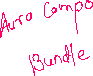 Auro Campo
Bundle